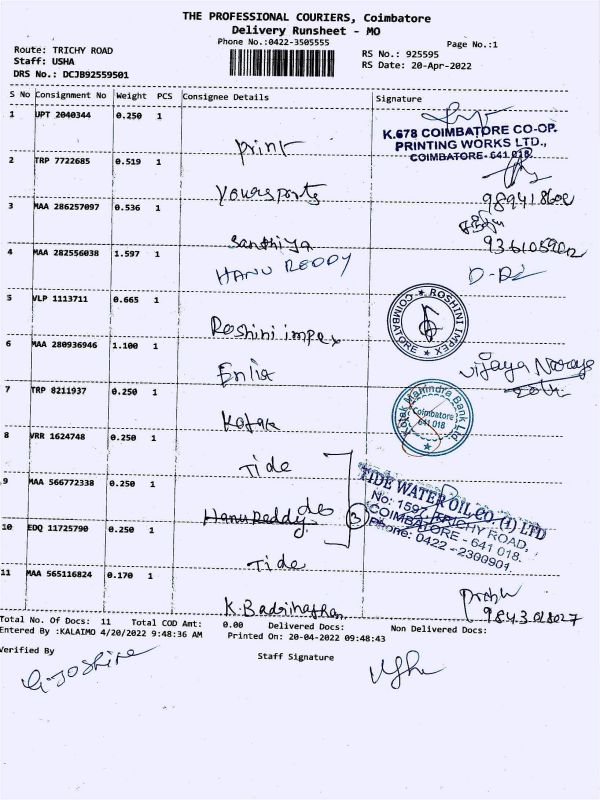 THE PROFESSIONAL COURIERS, Coimbatore
Delivery Runsheet - MO
Phone No.:0422-3505555
Page No.:1
Route: TRICHY ROAD
RS No.: 925595
Staff: USHA
RS Date: 20-Apr-2022
DRS No.: DCJB92559501
S No Consignment No Weight PCS Consignee Details Signature
1 UPT 2040344 0.250 1
K.678 COIMBATORE CO-OP.
PRINTING WORKS LTD.,
COIMBATORE- 641 018.
print
2 TRP 7722685 0.519 1
yoursports
3 MAA 286257097 0.536 1
Santhiya
9361059002
4 MAA 282556038 1.597 1
HANU REDDY
5 VLP 1113711 0.665 1
COIMBATORE ★ ROSHINI IMPEX ★
Roshini impex
6 MAA 280936946 1.100 1
Enlia
vijaya
7 TRP 8211937 0.250 1
Kotak Mahindra Bank Ltd
Coimbatore
641 018
Kotak
8 VRR 1624748 0.250 1
Tide
9 MAA 566772338 0.250 1
TIDE WATER OIL CO. (I) LTD
No: 1597, TRICHY ROAD,
COIMBATORE - 641 018.
Phone: 0422 - 2300901.
Hanu Reddy do
3
10 EDQ 11725790 0.250 1
Tide
11 MAA 565116824 0.170 1
K. Badrinathan
Total No. Of Docs: 11 Total COD Amt: 0.00 Delivered Docs: Non Delivered Docs:
Entered By :KALAIMO 4/20/2022 9:48:36 AM Printed On: 20-04-2022 09:48:43
Verified By
Staff Signature
G. Joshire